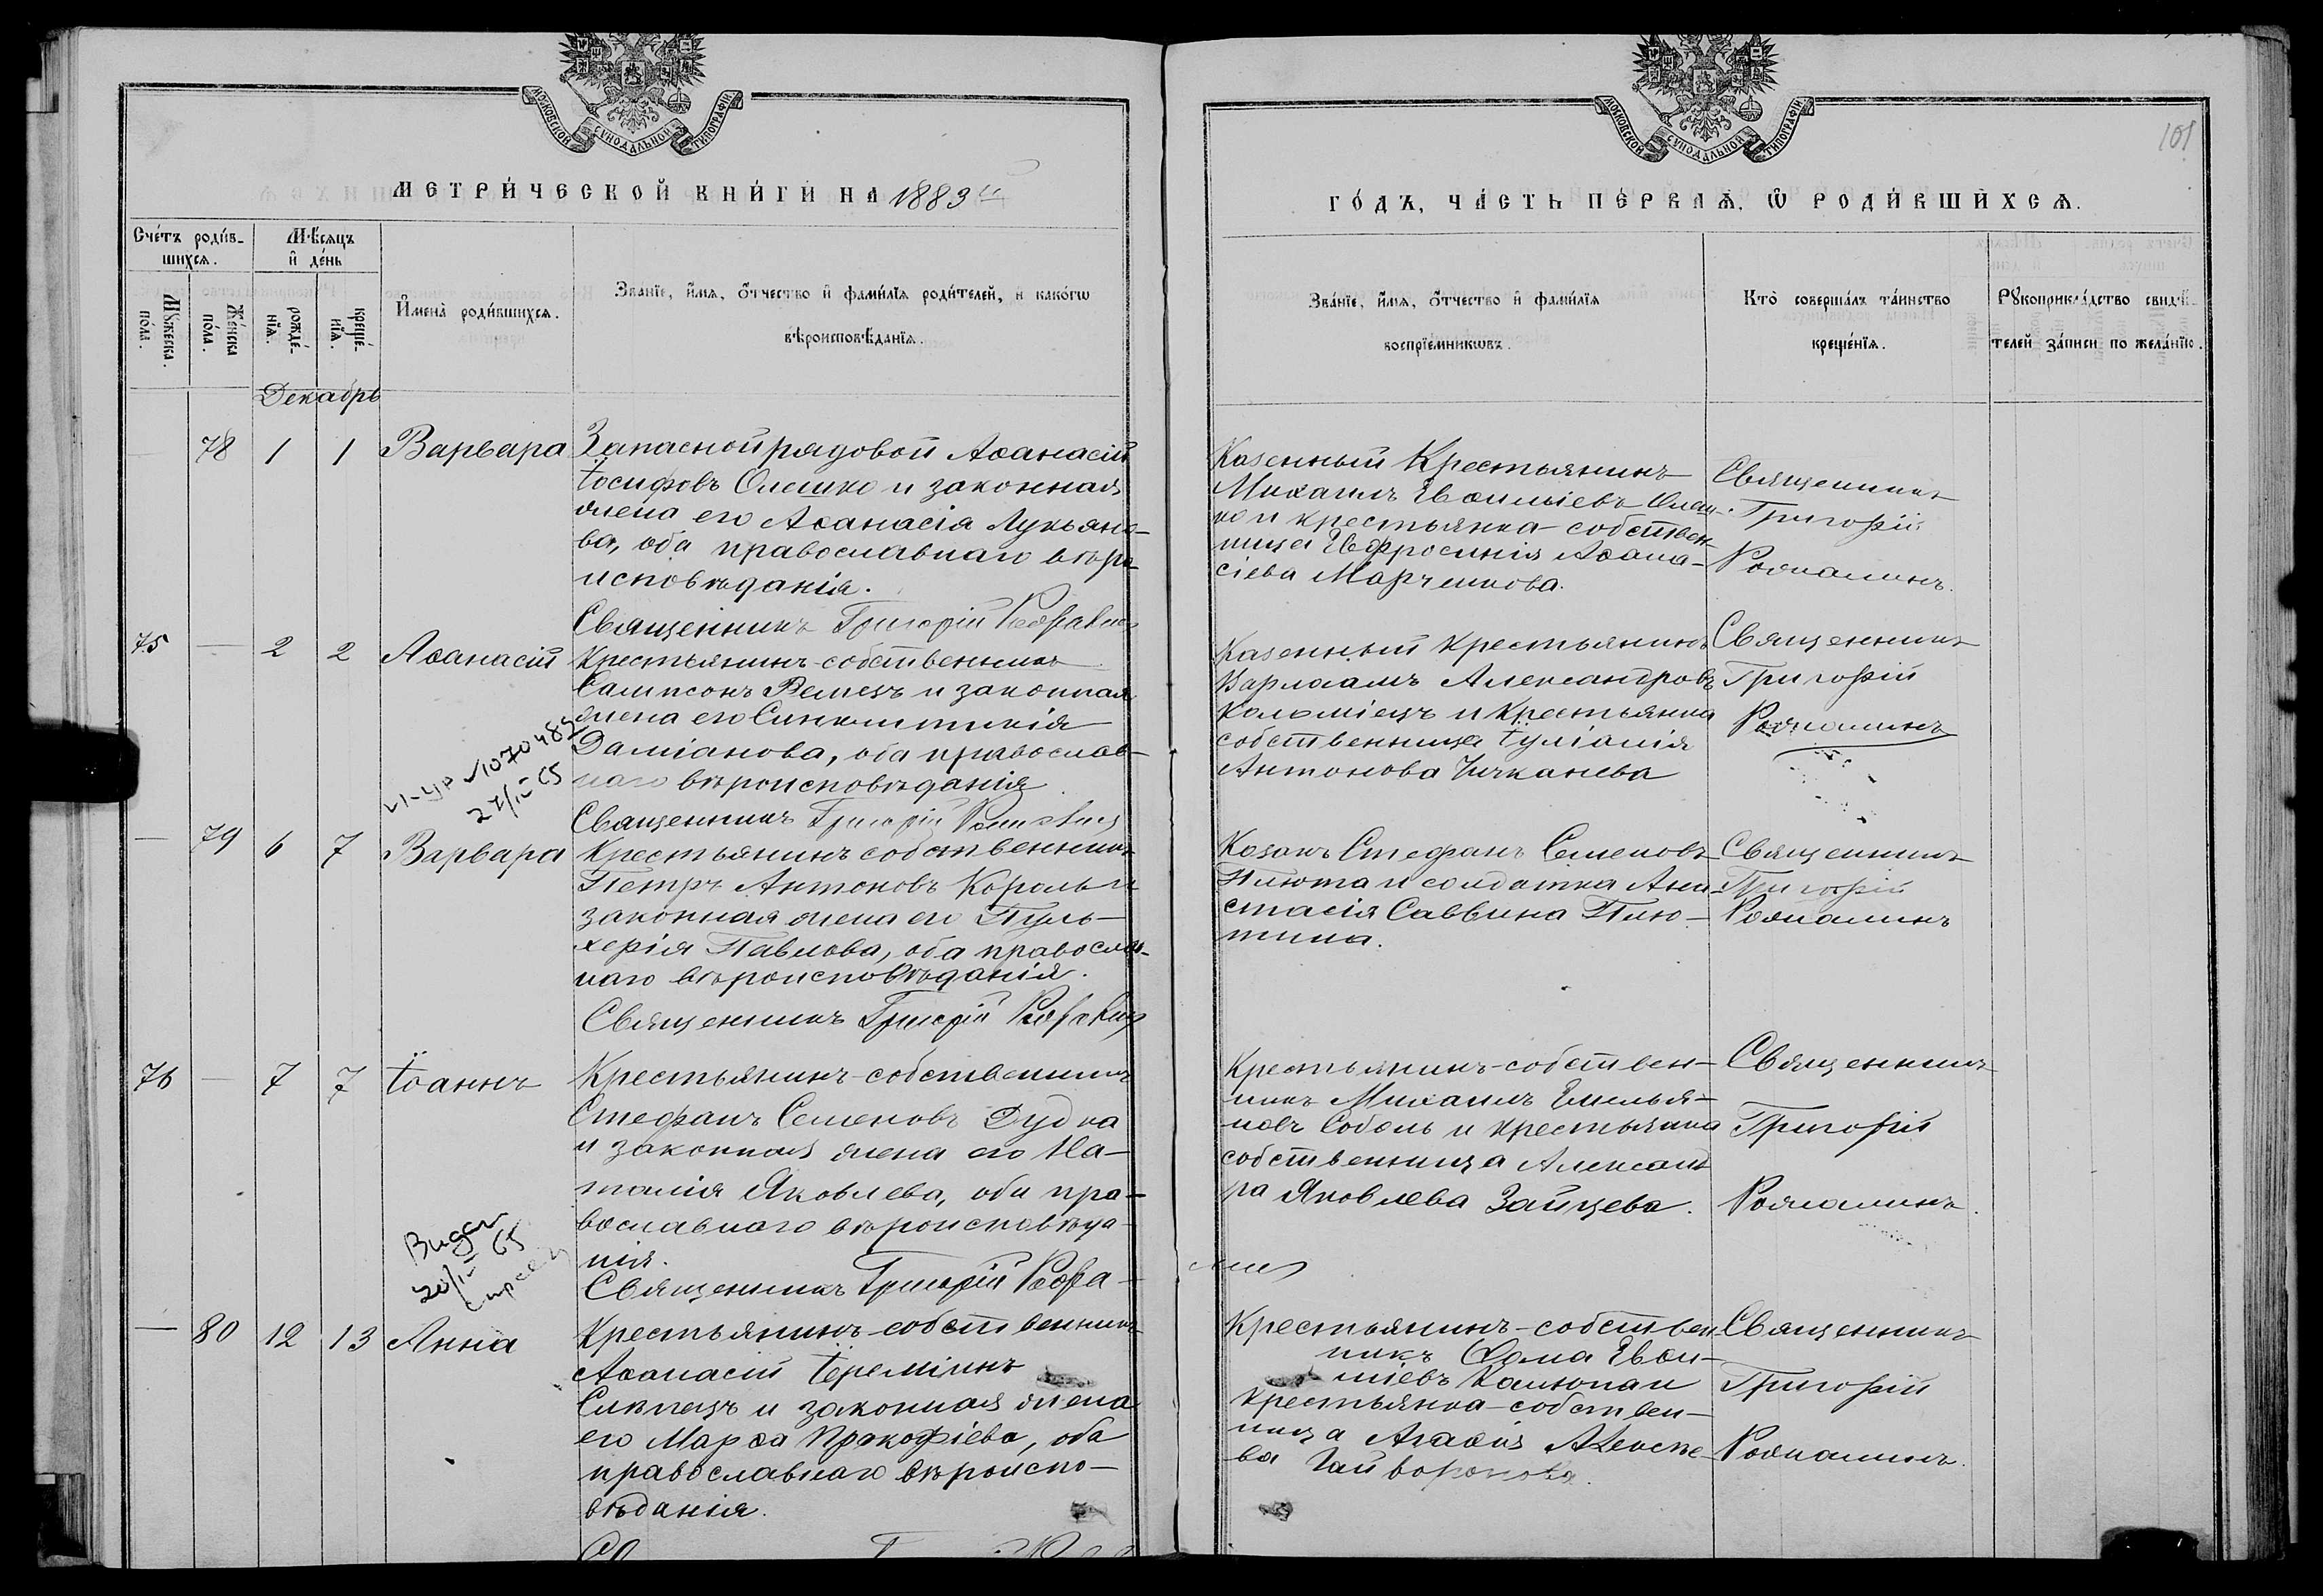 МОСКОВСКОЙ СѴНОДАЛЬНОЙ ТИПОГРАФІИ
МЕТРИ́ЧЕСКОЙ КНИ́ГИ НА 1883й
Сче́тъ роди́в-
шихсѧ.
Мѣ́сѧцъ
и҆ де́нь
Мꙋ́жеска
по́ла.
Же́нска
по́ла.
рожде́-
нїѧ.
креще́-
нїѧ.
И҆мена̀ роди́вшихсѧ.
Зва́нїе, и҆́мѧ, ѻ҆́тчество и҆ фами́лїѧ роди́телей, и҆ како́гѡ
вѣроисповѣ́данїѧ.
Декабрь
78 1 1 Варвара
Запасной рядовой Аѳанасій
Іосифовъ Олешко и законная
жена его Аѳанасія Лукьяно-
ва, оба православнаго вѣро-
исповѣданія.
Священникъ Григорій
75 — 2 2 Аѳанасій
Крестьянинъ-собственникъ
Сампсонъ Ремезъ и законная
жена его Синклитикія
Даміанова, оба православ-
наго вѣроисповѣданія
Священникъ Григорій
1070489
27/IV-65
— 79 6 7 Варвара
Крестьянинъ собственникъ
Петръ Антоновъ Король и
законная жена его Пуль-
херія Павлова, оба православ-
наго вѣроисповѣданія.
Священникъ Григорій
76 — 7 7 Іоаннъ
Крестьянинъ-собственникъ
Стефанъ Семеновъ Дудка
и законная жена его На-
талія Яковлева, оба пра-
вославнаго вѣроисповѣда-
нія.
Священникъ Григорій
Выдан
20/IV-65
— 80 12 13 Анна
Крестьянинъ-собственникъ
Аѳанасій Іереміинъ
Слѣпецъ и законная жена
его Марѳа Прокофіева, оба
православнаго вѣроиспо-
вѣданія.
МОСКОВСКОЙ СѴНОДАЛЬНОЙ ТИПОГРАФІИ
101
ГО́ДЪ, ЧА́СТЬ ПЕ́РВАѦ, Ѽ РОДИ́ВШИХСѦ.
Зва́нїе, и҆́мѧ, ѻ҆́тчество и҆ фами́лїѧ
воспрїе́мникѡвъ.
Кто̀ соверша́лъ та́инство
креще́нїѧ.
Рꙋкоприкла́дство свидѣ́-
телей за́писи по жела́нїю.
Казенный Крестьянинъ
Михаилъ Евѳиміевъ Олеш-
ко и крестьянка-собствен-
ница Евфросинія Аѳана-
сіева Марченкова.
Священникъ
Григорій
Казенный крестьянинъ
Варлаамъ Александровъ
Коломіецъ и крестьянка
собственница Іуліанія
Антонова Чичканева
Священникъ
Григорій
Козакъ Стефанъ Семеновъ
Плюта и солдатка Ана-
стасія Саввина Плю-
тина.
Священникъ
Григорій
Крестьянинъ-собствен-
никъ Михаилъ Емелья-
новъ Соболь и крестьянка
собственница Александ-
ра Яковлева Зайцева.
Священникъ
Григорій
Крестьянинъ-собствен-
никъ Ѳома Евѳи-
міевъ Калюжан
крестьянка-собствен-
ница Агаѳія Алексѣе-
ва Гайворонова.
Священникъ
Григорій